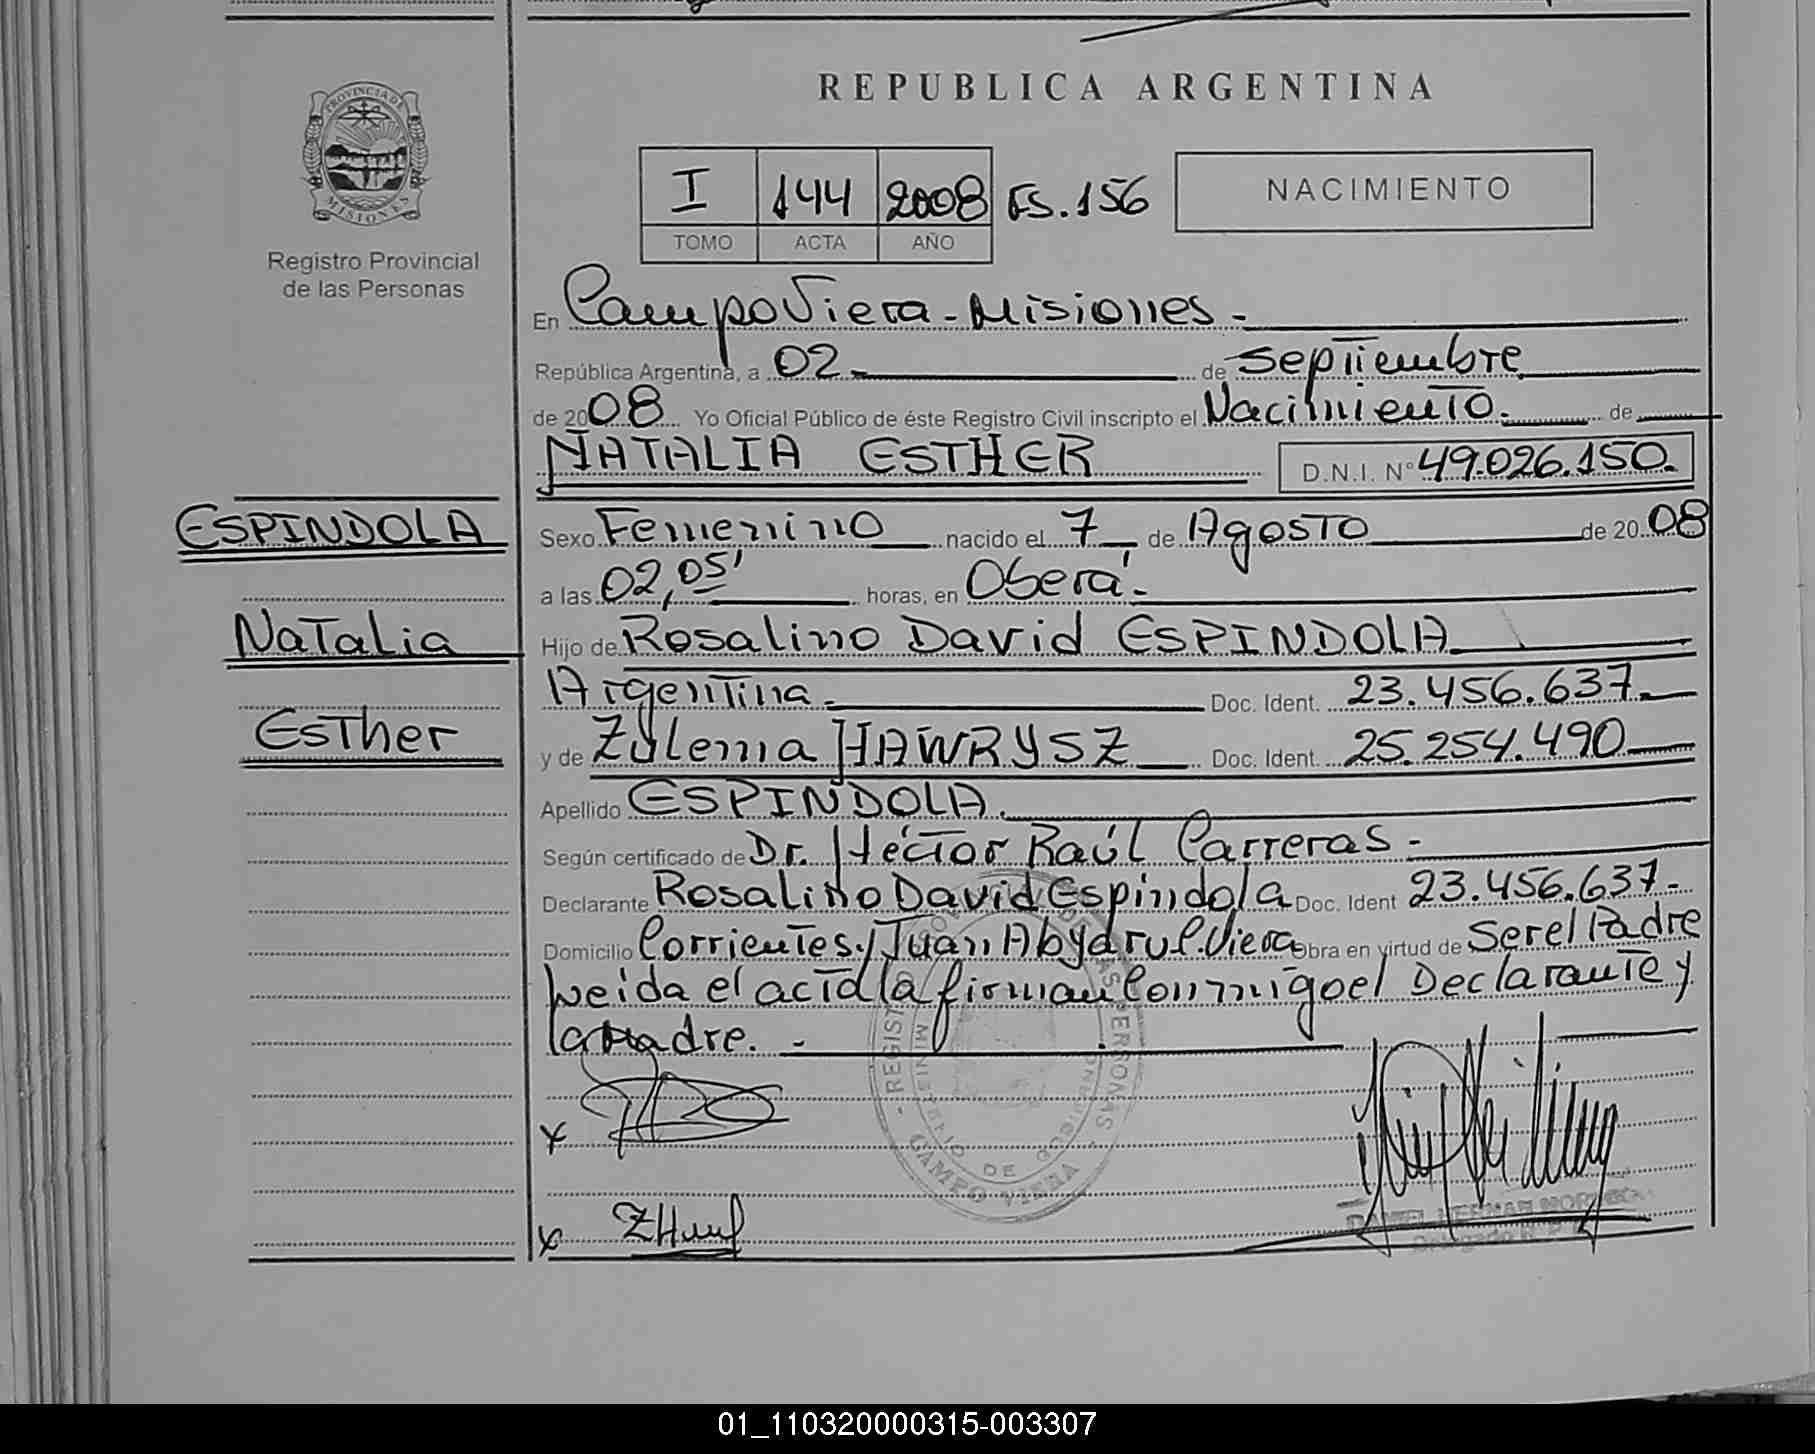 REPUBLICA ARGENTINA
PROVINCIA DE
MISIONES
Registro Provincial
de las Personas
I 144 2008 FS.156
TOMO ACTA AÑO
NACIMIENTO
En Campo Viera - Misiones.-
República Argentina, a 02.- de septiembre
de 2008 Yo Oficial Público de éste Registro Civil inscripto el Nacimiento. de
NATALIA ESTHER D.N.I. N° 49.026.150.
ESPINDOLA
Natalia
Esther
Sexo Femenino nacido el 7 de Agosto de 2008
a las 02,05' horas, en Oberá.-
Hijo de Rosalino David ESPINDOLA
Argentina.- Doc. Ident. 23.456.637.-
y de Zulema HAWRYSZ Doc. Ident. 25.254.490
Apellido ESPINDOLA.
Según certificado de Dr. Héctor Raúl Carreras.-
Declarante Rosalino David Espindola Doc. Ident 23.456.637.-
Domicilio Corrientes y Juan Abydarul C. Viera Obra en virtud de Ser el Padre
Leida el acta la firman Conmigo el Declarante y
la Madre.-
x
x ZHawr
CAMPO VIERA
01_110320000315-003307